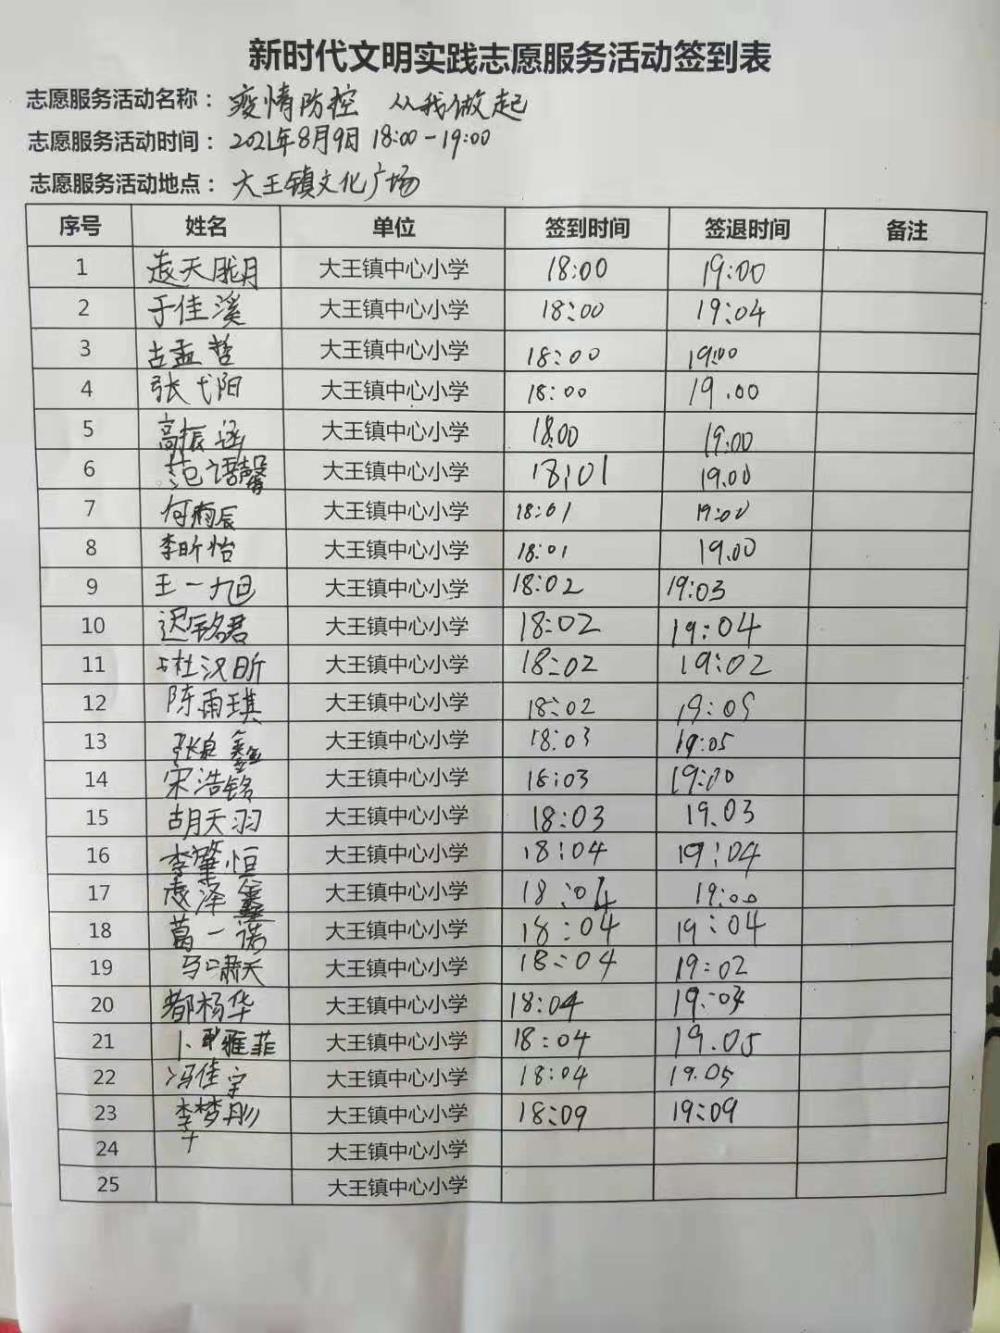 新时代文明实践志愿服务活动签到表
志愿服务活动名称：疫情防控 从我做起
志愿服务活动时间：2021年8月9日 18:00-19:00
志愿服务活动地点：大王镇文化广场
序号 姓名 单位 签到时间 签退时间 备注
1 天胧月 大王镇中心小学 18:00 19:00
2 于佳溪 大王镇中心小学 18:00 19:04
3 古孟哲 大王镇中心小学 18:00 19:00
4 张弋阳 大王镇中心小学 18:00 19.00
5 高振涵 大王镇中心小学 18:00 19:00
6 范语馨 大王镇中心小学 18:01 19.00
7 何雨辰 大王镇中心小学 18:01 19:00
8 李昕怡 大王镇中心小学 18:01 19.00
9 王一旭 大王镇中心小学 18:02 19:03
10 迟铭君 大王镇中心小学 18:02 19:04
11 杜汉昕 大王镇中心小学 18:02 19:02
12 陈雨琪 大王镇中心小学 18:02 19:05
13 张泉鑫 大王镇中心小学 18:03 19:05
14 宋浩铭 大王镇中心小学 18:03 19:00
15 胡天羽 大王镇中心小学 18:03 19.03
16 李肇恒 大王镇中心小学 18:04 19:04
17 泽鑫 大王镇中心小学 18:04 19:00
18 葛一诺 大王镇中心小学 18:04 19:04
19 马啸天 大王镇中心小学 18:04 19:02
20 都杨华 大王镇中心小学 18:04 19:03
21 雅菲 大王镇中心小学 18:04 19.05
22 冯佳宇 大王镇中心小学 18:04 19.05
23 李梦彤 大王镇中心小学 18:09 19:09
24 大王镇中心小学
25 大王镇中心小学